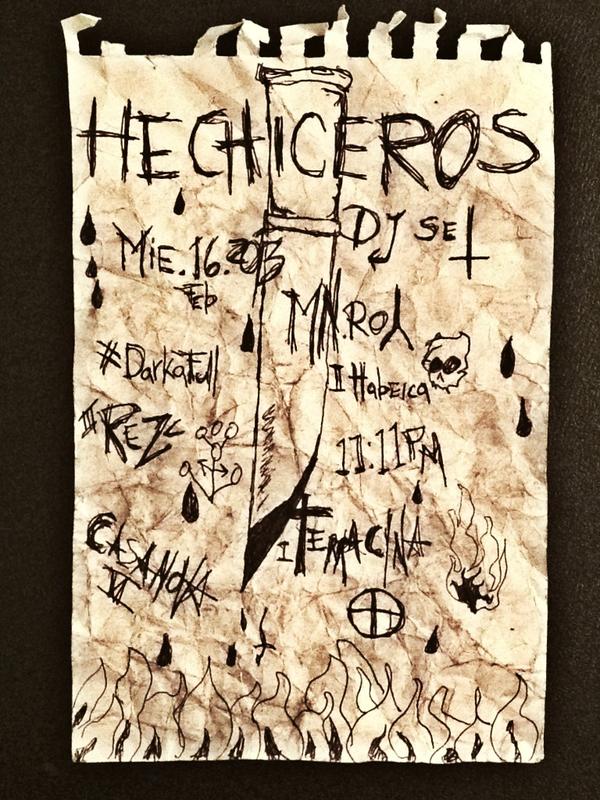 HECHICEROS
DJ SET
MIE. 16. 2013
Feb
MN.ROY
#DarkaFull
I Habeica
III REZC
11:11PM
CASANOVA
VI
I TEMACINA